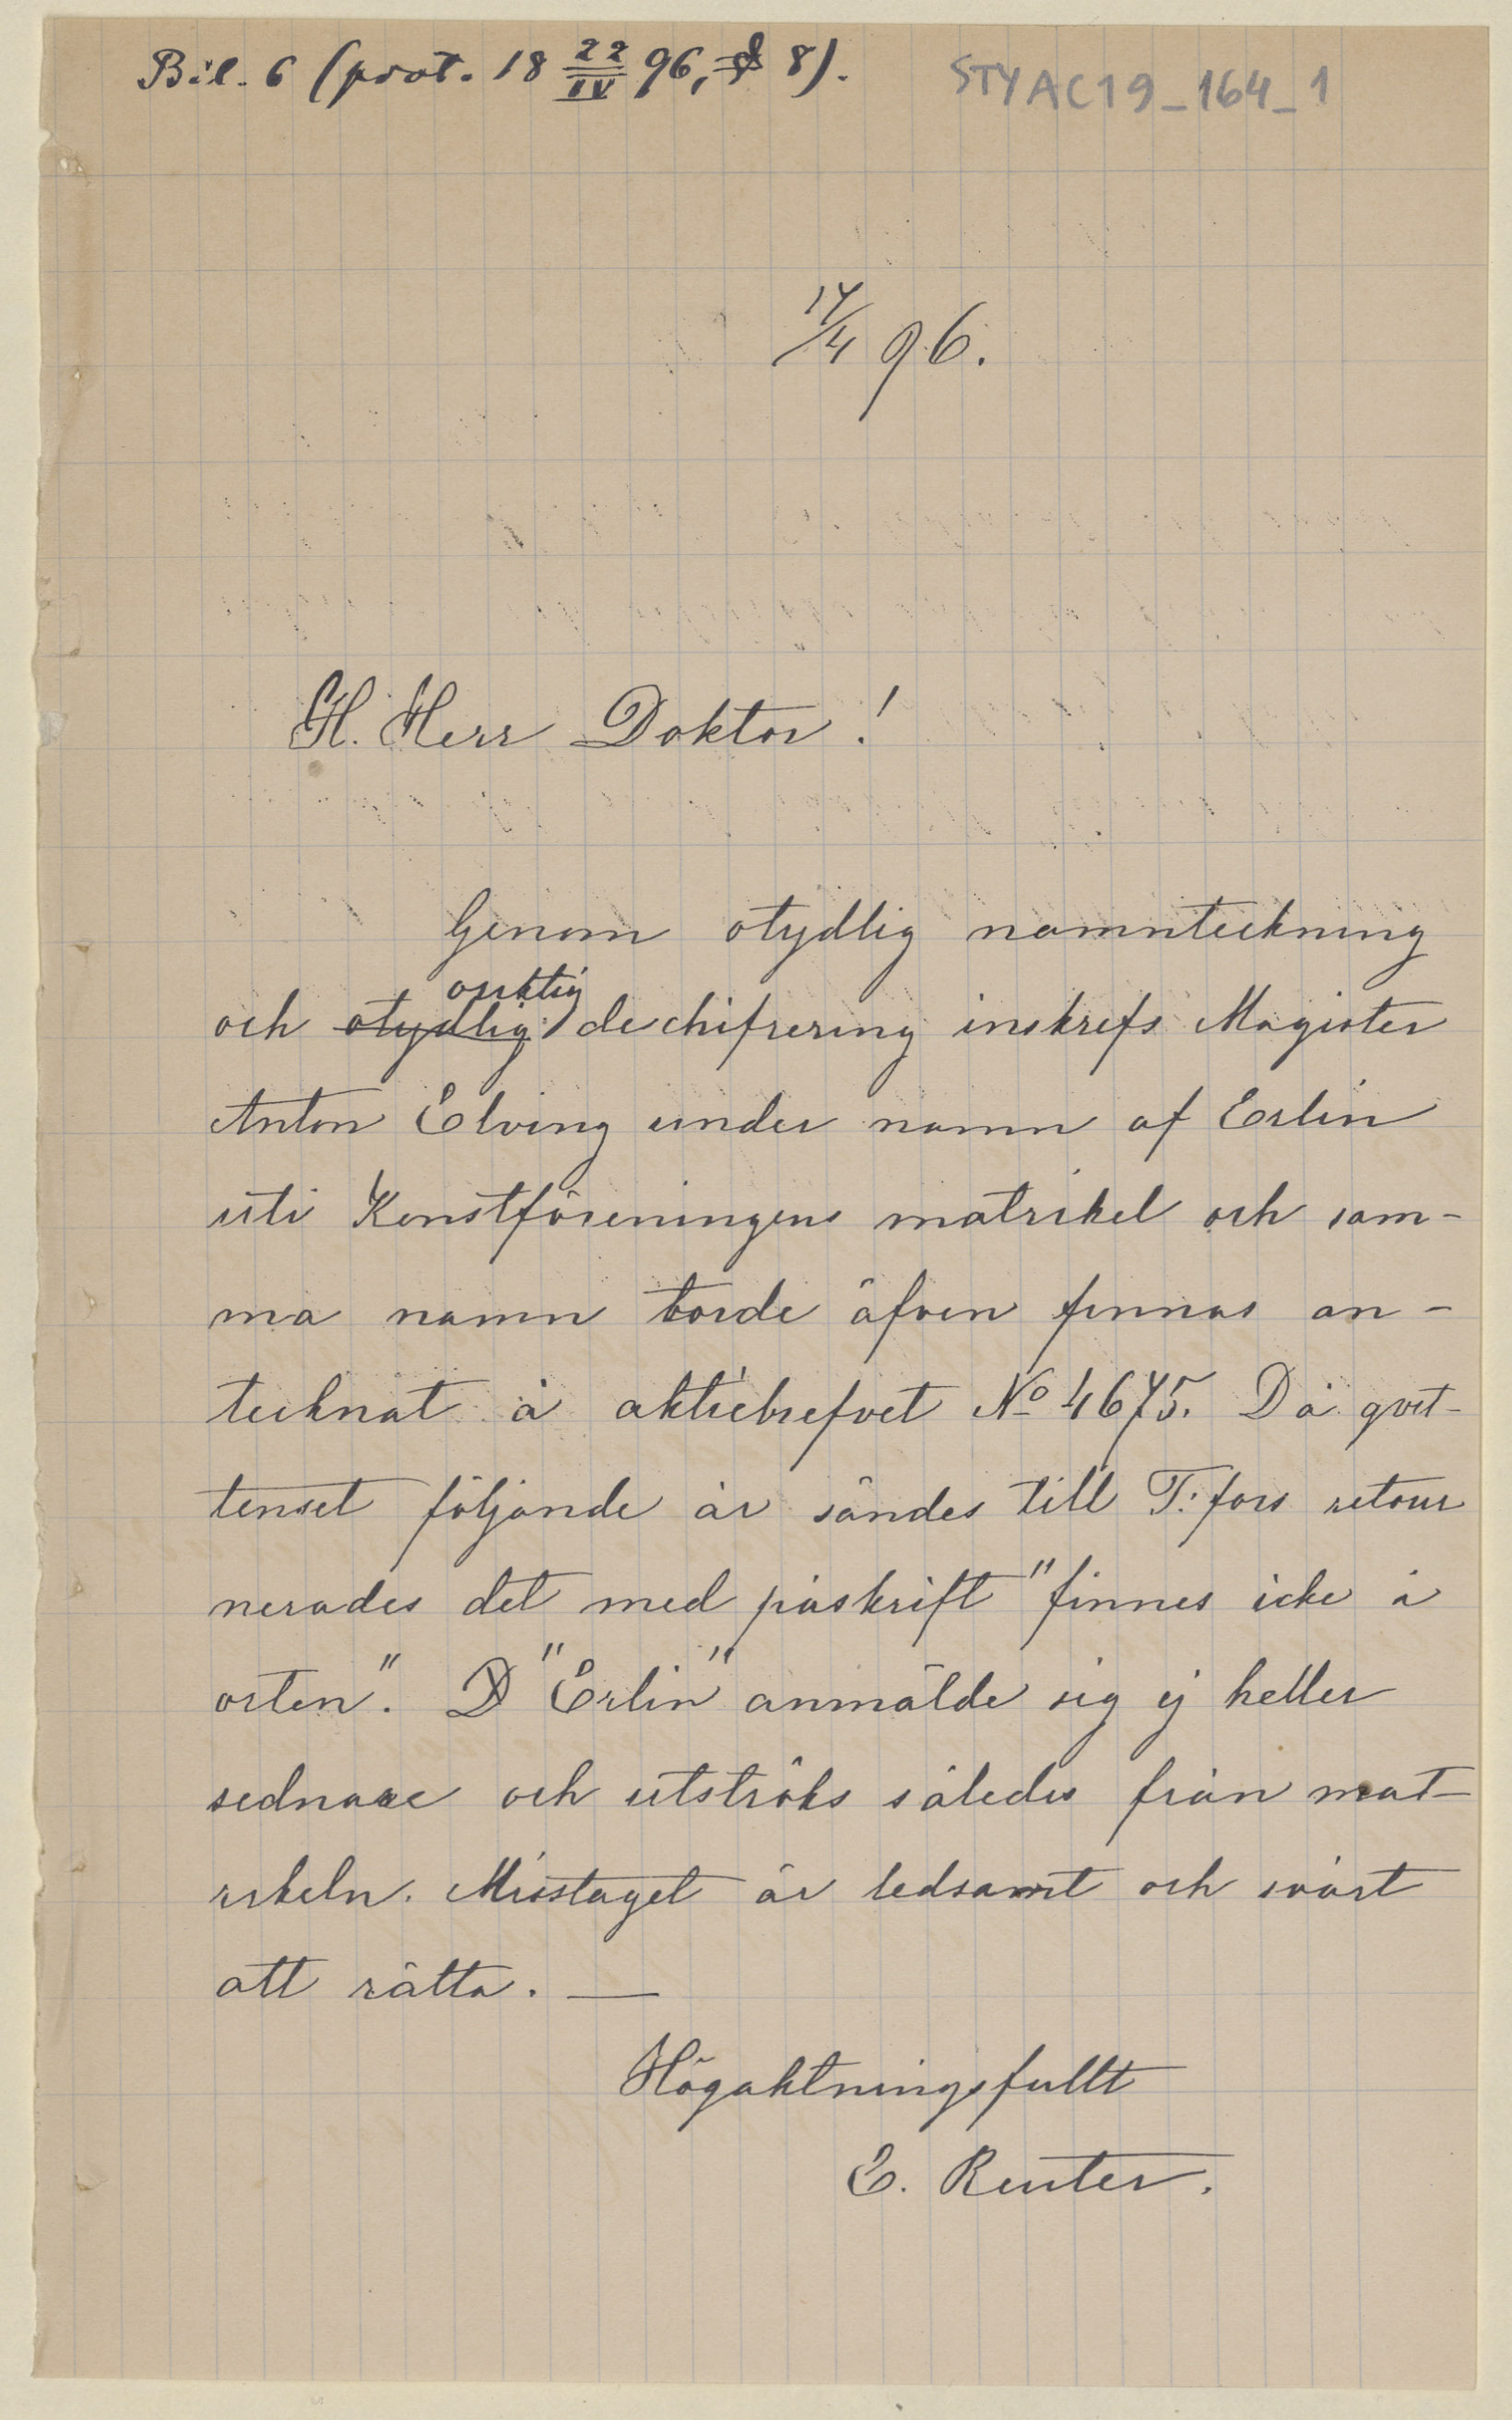 Bil. 6 (prot. 18 22/IV 96, § 8).
STY AC19_164_1
17/4 96.
H. Herr Doktor!
Genom otydlig namnteckning
oriktig
och otydlig dechifrering inskrefs Magister
Anton Elving under namn af Erlin
uti Konstföreningens matrikel och sam-
ma namn torde äfven finnas an-
tecknat å aktiebrefvet No 4675. Då qvit-
tenset följande år sändes till T:fors retour
nerades det med påskrift "finnes icke å
orten". D "Erlin" anmälde sig ej heller
sednare och utströks således från mat-
rikeln. Misstaget är ledsamt och svårt
att rätta. —
Högaktningsfullt
E. Reuter.